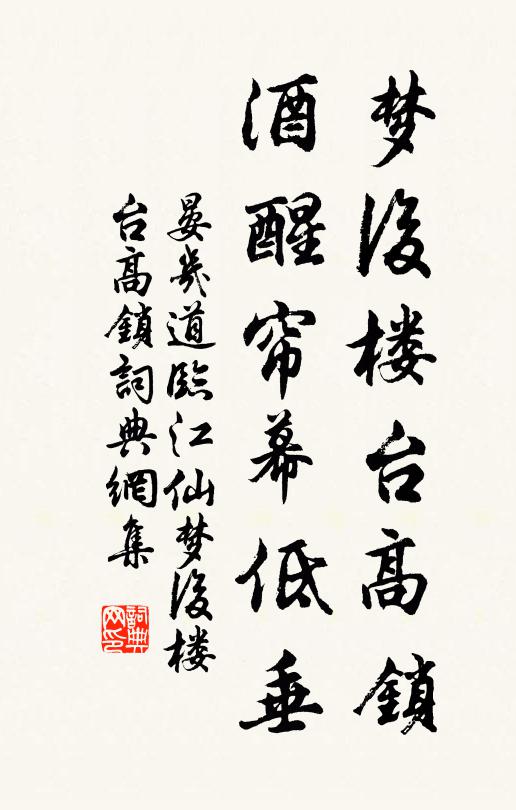 梦后楼台高鎖
酒醒帘幕低垂
晏幾道臨江仙梦后楼
台高鎖詞典網集
詞典
网印